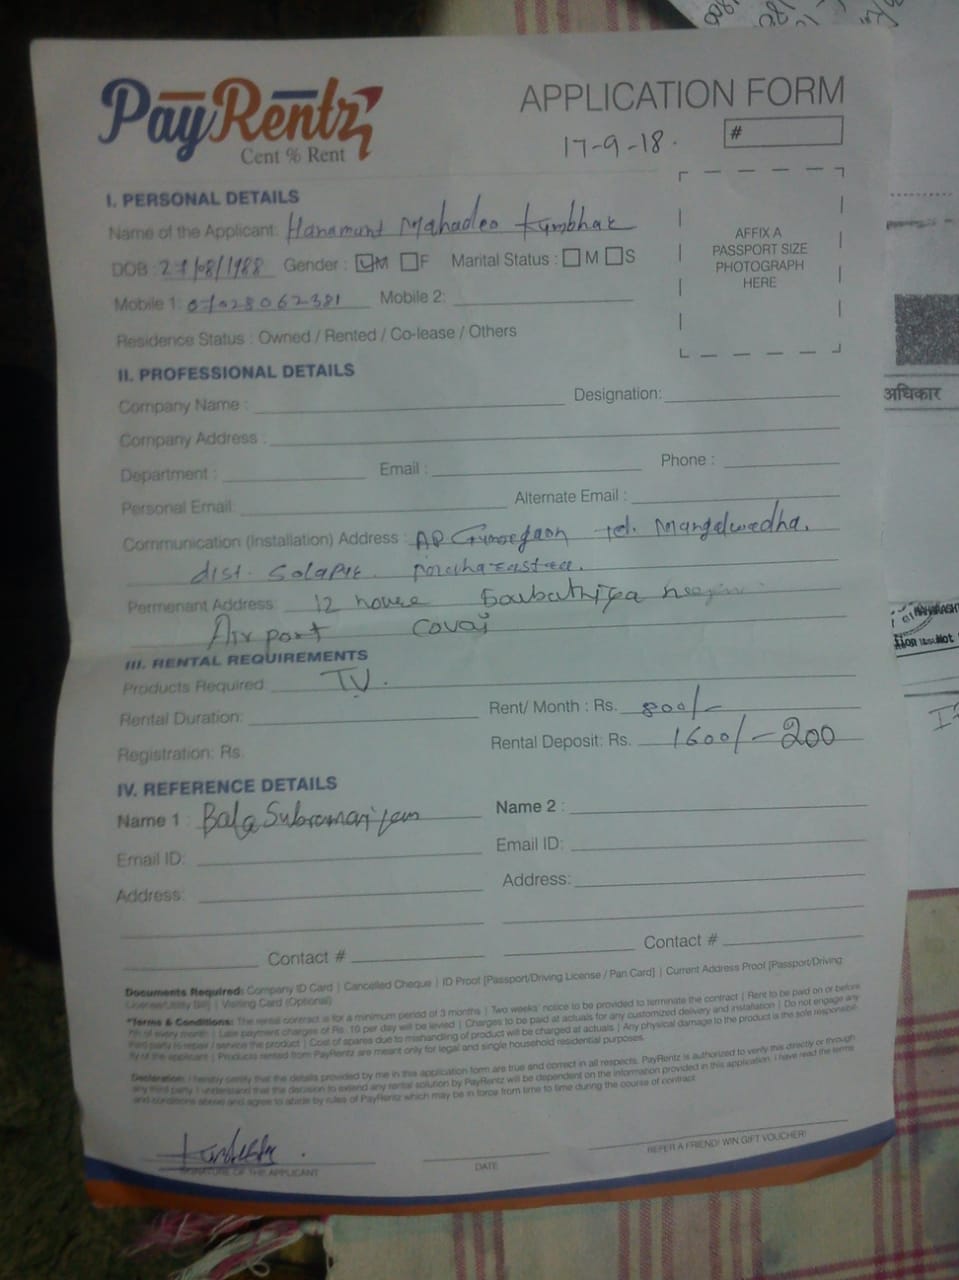 PayRentz
Cent % Rent
APPLICATION FORM
17-9-18.
#
I. PERSONAL DETAILS
Name of the Applicant: Hanamunt Mahadeo Kumbhar
DOB : 27/08/1988 Gender : M F Marital Status : M S
Mobile 1: 07028062381 Mobile 2:
AFFIX A
PASSPORT SIZE
PHOTOGRAPH
HERE
Residence Status : Owned / Rented / Co-lease / Others
II. PROFESSIONAL DETAILS
Company Name : Designation:
Company Address :
Department : Email : Phone :
Personal Email: Alternate Email :
Communication (Installation) Address : AP tel. Mangalwedha.
dist. Solapur.
Permenant Address: 12 house
Airport Covai
III. RENTAL REQUIREMENTS
Products Required: TV.
Rental Duration: Rent/ Month : Rs. 800/-
Registration: Rs. Rental Deposit: Rs. 1600/- 200
IV. REFERENCE DETAILS
Name 1 : Bala Subramaniyam Name 2 :
Email ID: Email ID:
Address: Address:
Contact # Contact #
Documents Required: Company ID Card | Cancelled Cheque | ID Proof [Passport/Driving License / Pan Card] | Current Address Proof [Passport/Driving
License/Utility Bill] | Visiting Card (Optional)
*Terms & Conditions: The rental contract is for a minimum period of 3 months | Two weeks' notice to be provided to terminate the contract | Rent to be paid on or before
7th of every month | Late payment charges of Rs. 10 per day will be levied | Charges to be paid at actuals for any customized delivery and installation | Do not engage any
third party to repair / service the product | Cost of spares due to mishandling of product will be charged at actuals | Any physical damage to the product is the sole responsibil-
ity of the applicant | Products rented from PayRentz are meant only for legal and single household residential purposes.
Declaration: I hereby certify that the details provided by me in this application form are true and correct in all respects. PayRentz is authorized to verify this directly or through
any third party. I understand that the decision to extend any rental solution by PayRentz will be dependent on the information provided in this application. I have read the terms
and conditions above and agree to abide by rules of PayRentz which may be in force from time to time during the course of contract
SIGNATURE OF THE APPLICANT DATE REFER A FRIEND! WIN GIFT VOUCHER!
अधिकार